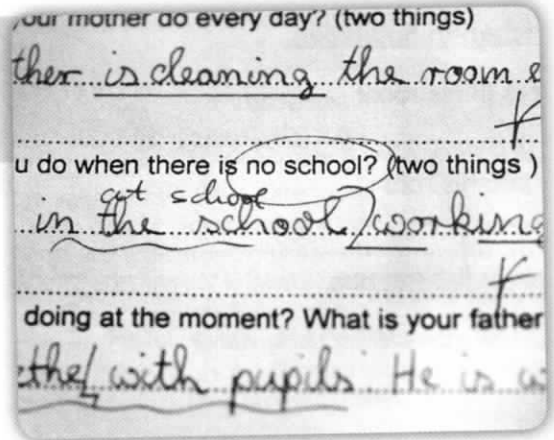 your mother do every day? (two things)
ther is cleaning the room e
u do when there is no school? (two things )
at school
in the school working
doing at the moment? What is your father
the with pupils. He is w